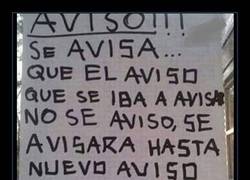 AVISO!!!
SE AVISA...
QUE EL AVISO
QUE SE IBA A AVISAR
NO SE AVISO, SE
AVISARA HASTA
NUEVO AVISO